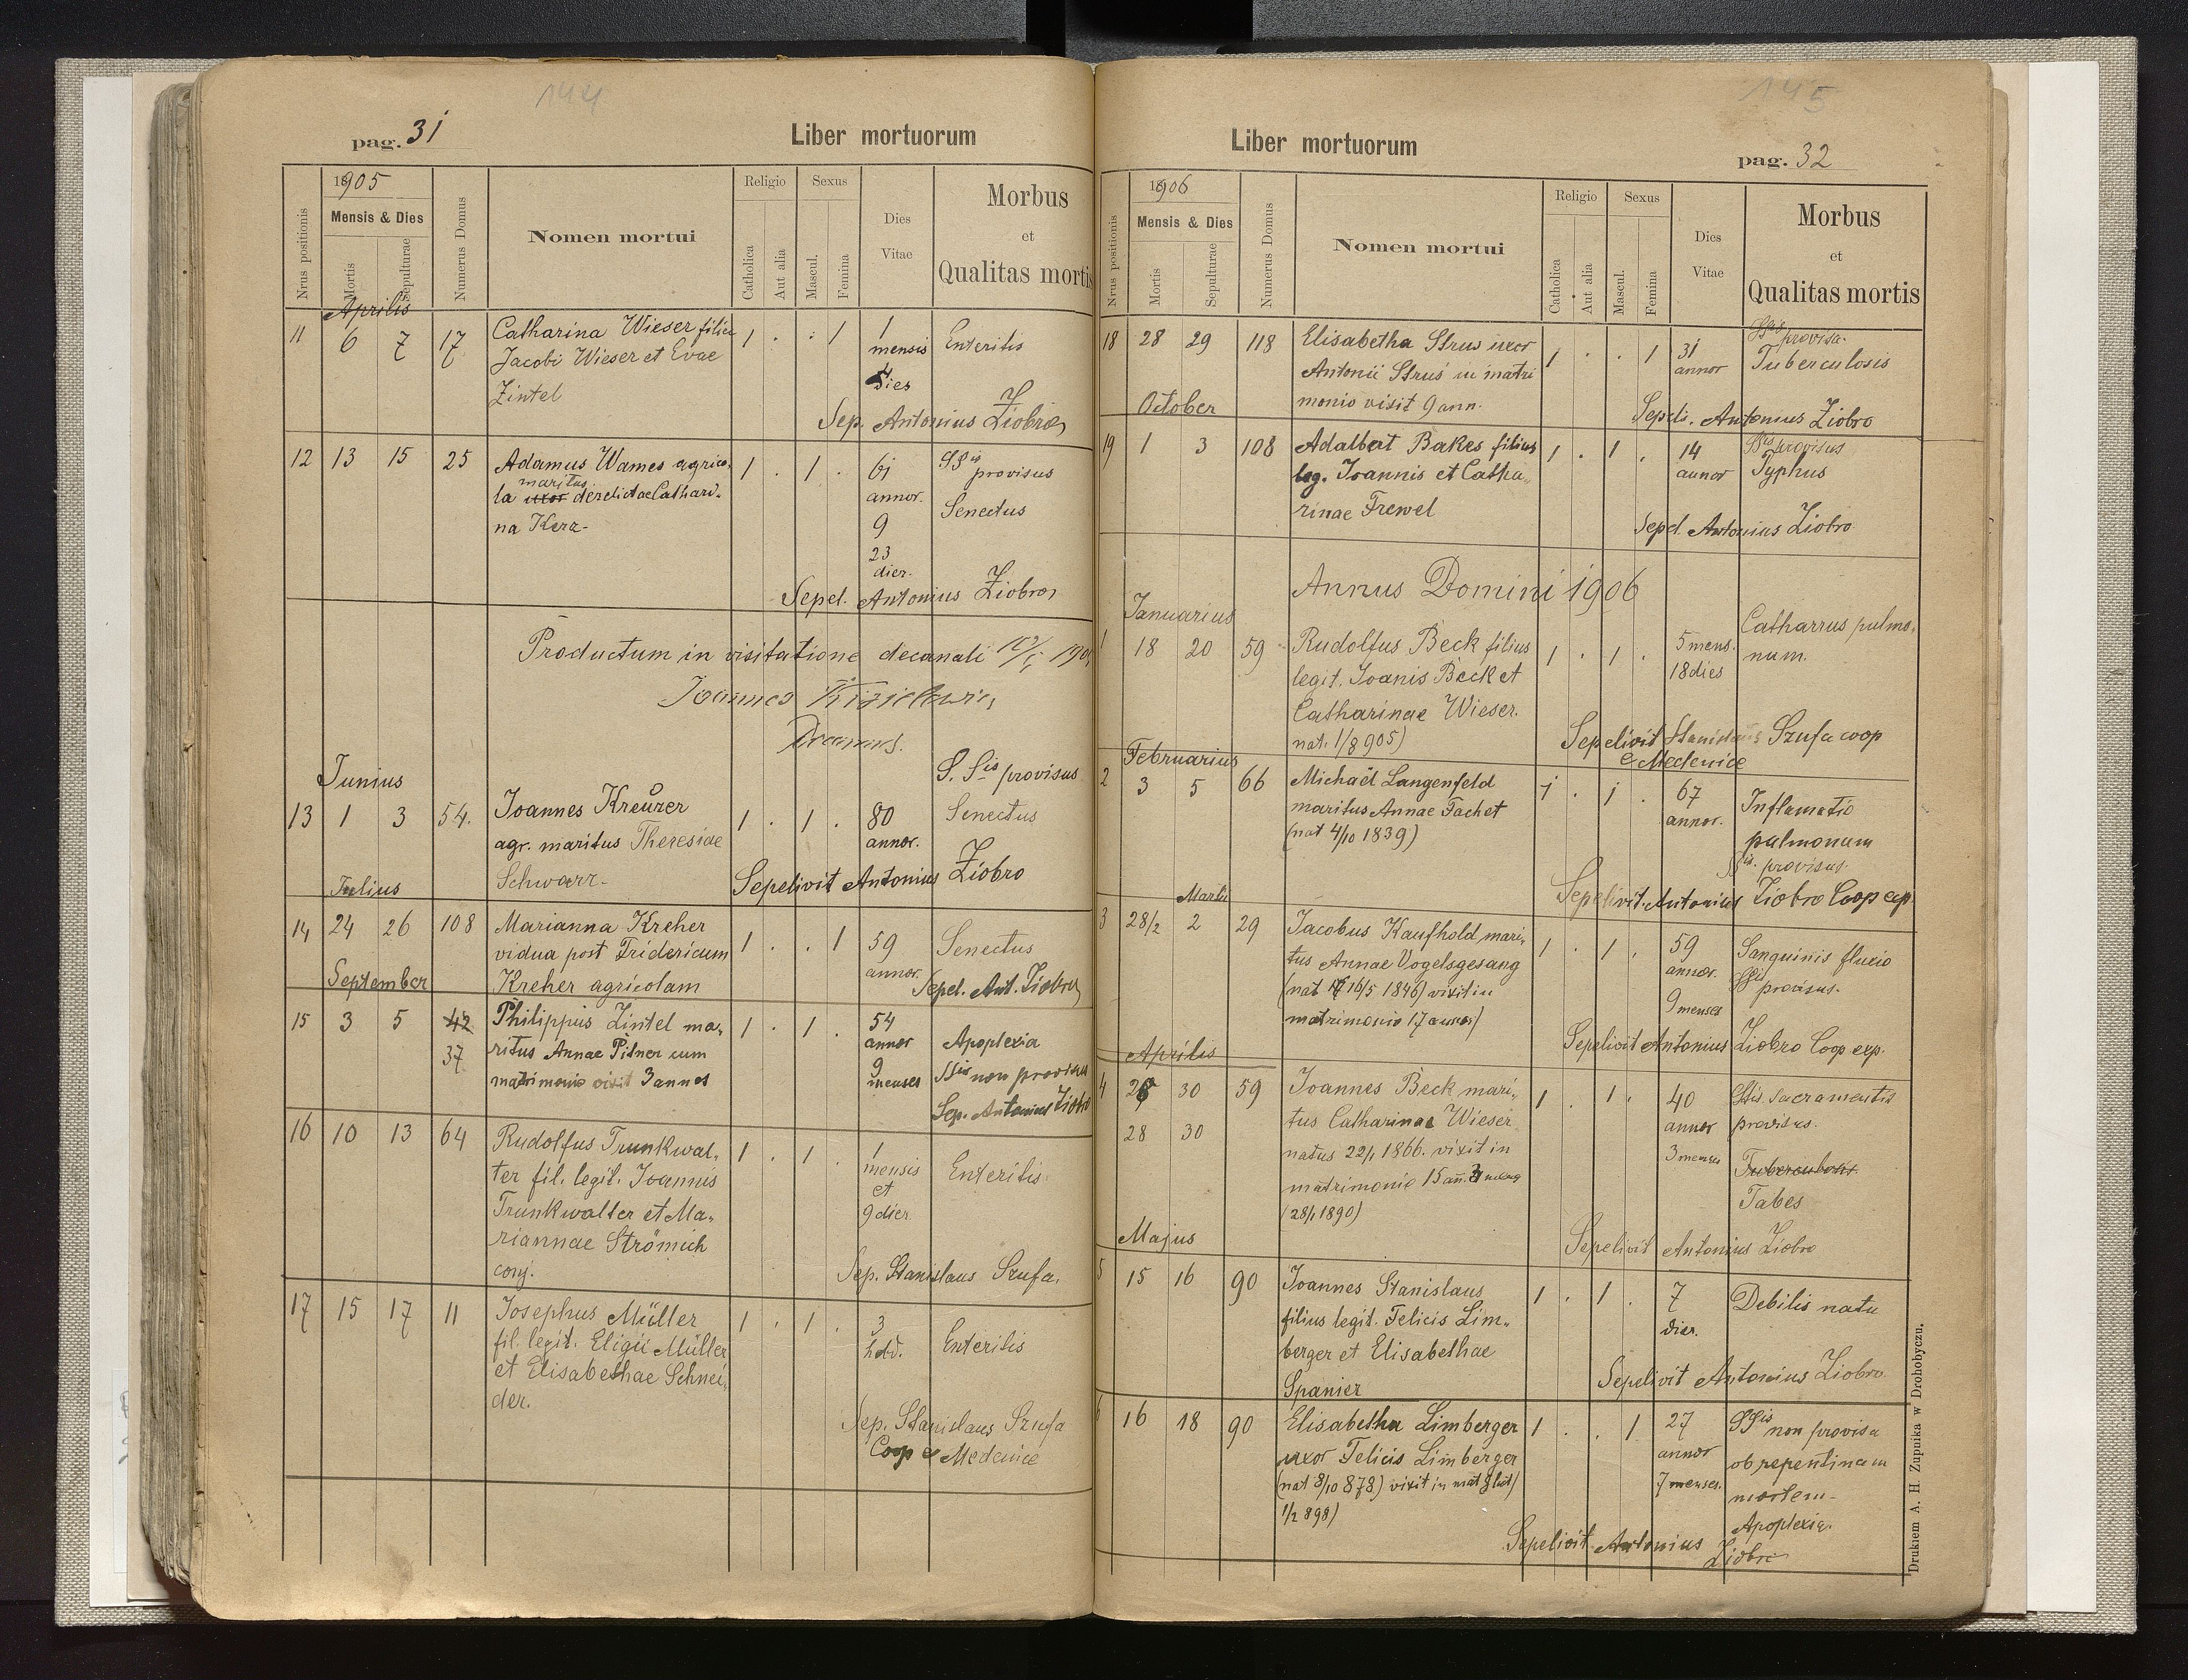 144
pag. 31
Liber mortuorum
1905
Mensis & Dies
Nrus positionis
Mortis
Sepulturae
Numerus Domus
Nomen mortui
Religio
Catholica
Aut alia
Sexus
Mascul.
Femina
Dies
Vitae
Morbus
et
Qualitas mortis
Aprilis
11 6 7 17 Catharina Wieser filia 1 . . 1 1 Enteritis
Jacobi Wieser et Evae mensis
Zintel 4 dies
Sep. Antonius Ziobro
12 13 15 25 Adamus Wames agrico- 1 . 1 . 61 SSis provisus
la uxor maritus derelictae Cathari- annor. Senectus
na Kerz- 9
23
dier.
Sepel. Antonius Ziobro
Productum in visitatione decanali
Joannes
Decanus.
Junius
S. Sis provisus
13 1 3 54. Joannes Kreuzer 1 . 1 . 80 Senectus
agr. maritus Theresiae annor.
Schwarz-
Sepelivit Antonius Ziobro
Julius
14 24 26 108 Marianna Kreher 1 . . 1 59 Senectus
vidua post Fridericum annor.
Kreher agricolam
Sepel. Ant. Ziobro
September
15 3 5 42 Philippus Zintel ma- 1 . 1 . 54 Apoplexia
37 ritus Annae Pitner cum annor SSis non provisus
matrimonio vixit 3 annos 9 menses
Sep. Antonius Ziobro
16 10 13 64 Rudolfus Trunkwal- 1 . 1 . 1 Enteritis
ter fil. legit. Joannis mensis
Trunkwalter et Ma- et
riannae Strömich 9 dier
conj.
Sep. Stanislaus Szufa.
17 15 17 11 Josephus Müller 1 . 1 . 3 Enteritis
fil. legit. Eligii Müller hebd.
et Elisabethae Schnei-
der.
Sep. Stanislaus Szufa
Coop e Medenice
145
Liber mortuorum
pag. 32
1906
Mensis & Dies
Nrus positionis
Mortis
Sepulturae
Numerus Domus
Nomen mortui
Religio
Catholica
Aut alia
Sexus
Mascul.
Femina
Dies
Vitae
Morbus
et
Qualitas mortis
SSis provisa.
18 28 29 118 Elisabetha Strus uxor 1 . . 1 31 Tuberculosis
Antonii Strus in matri annor
monio vixit 9 ann.
Sepeli. Antonius Ziobro
October
SSis provisus
19 1 3 108 Adalbert Bakes filius 1 . 1 . 14 Typhus
leg. Joannis et Catha- annor
rinae Frewel
Sepel. Antonius Ziobro
Annus Domini 1906
Januarius
1 18 20 59 Rudolfus Beck filius 1 . 1 . 5 mens. Catharrus pulmo-
legit. Joanis Beck et 18 dies num.
Catharinae Wieser.
nat. 1/8 905)
Sepelivit Stanislaus Szufa coop
e Medenice
Februarius
2 3 5 66 Michaël Langenfeld 1 . 1 . 67 Inflamatio
maritus Annae Fachet annor. pulmonum
(nat 4/10 1839) SSis. provisus.
Sepelivit Antonius Ziobro Coop exp.
Martii
3 28/2 2 29 Jacobus Kaufhold mari- 1 . 1 . 59 Sanguinis fluxio
tus Annae Vogelsgesang annor. SSis provisus.
(nat 16/5 1846) vixit in 9 menses
matrimonio 17 annos)
Sepelivit Antonius Ziobro Coop. exp.
Aprilis
4 28 30 59 Joannes Beck mari- 1 . 1 . 40 SStis Sacramentis
28 30 tus Catharinae Wieser annor provisus.
natus 22/1 1866. vixit in 3 menses Tuberculosis
matrimonio 15 an. 3 menses Tabes
(28/1 1890)
Sepelivit Antonius Ziobro
Majus
5 15 16 90 Joannes Stanislaus 1 . 1 . 7 Debilis natu
filius legit. Felicis Lim- dier.
berger et Elisabethae
Spanier
Sepelivit Antonius Ziobro
6 16 18 90 Elisabetha Limberger 1 . . 1 27 SSis non provisa
uxor Felicis Limberger annor ob repentinam
(nat 8/10 878) vixit in mat 7 menses. mortem-
1/2 898) Apoplexia.
Sepelivit Antonius Ziobro
Drukiem A. H Zupnika w Drohobyczu.